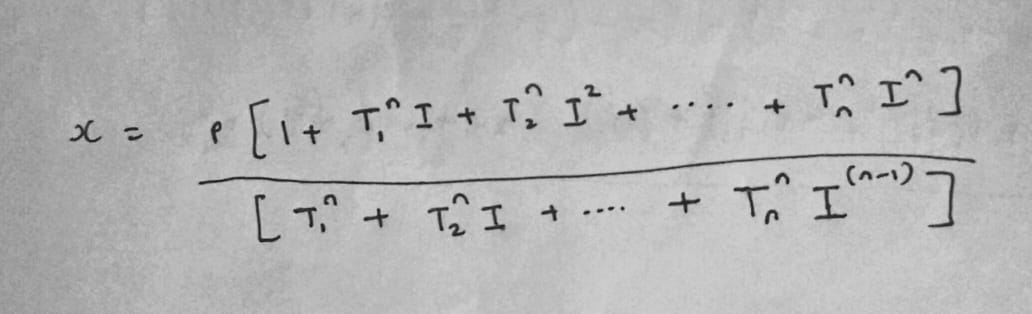 x = P [ 1 + T₁ⁿ I + T₂ⁿ I² + .... + Tₙⁿ Iⁿ ]
[ T₁ⁿ + T₂ⁿ I + .... + Tₙⁿ I⁽ⁿ⁻¹⁾ ]